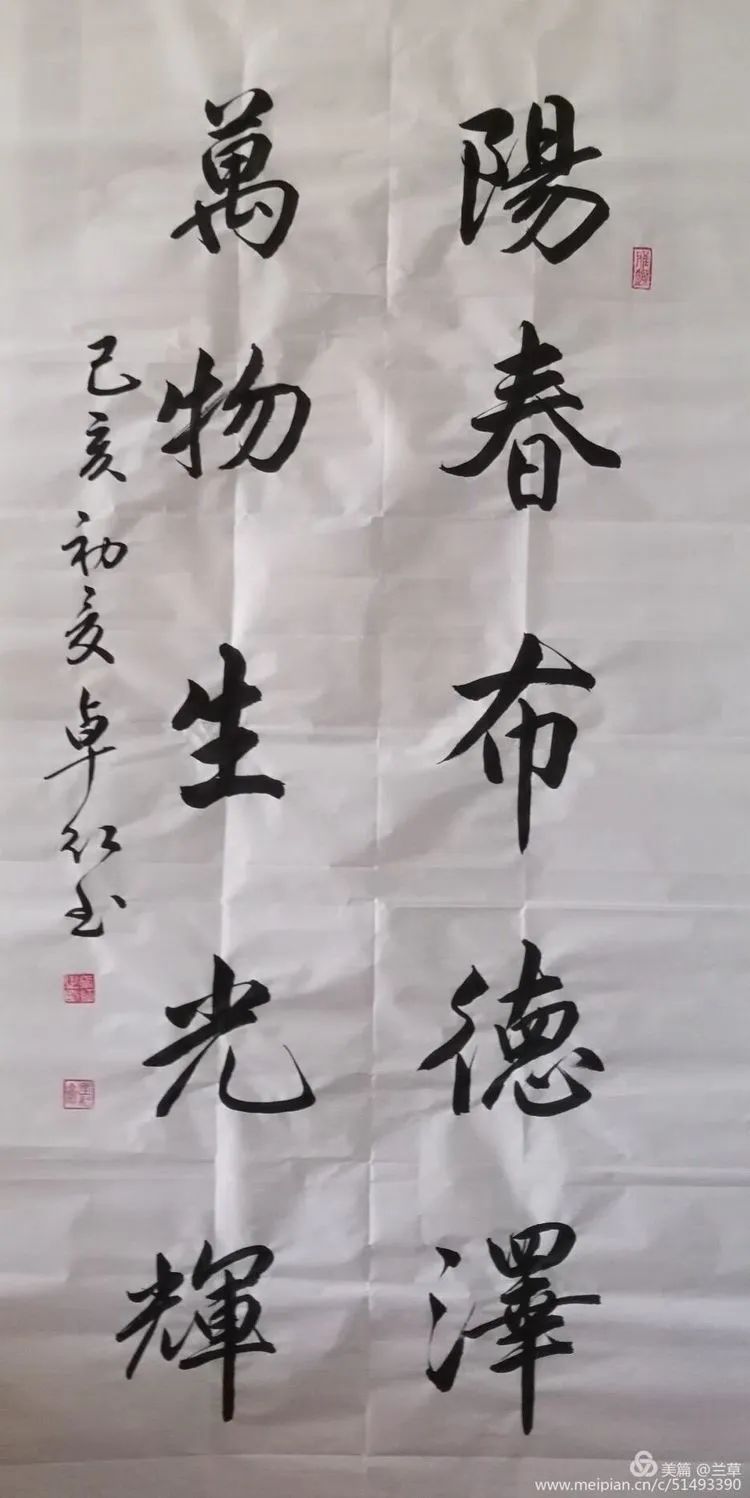 陽春布德澤
萬物生光輝
己亥初夏卓仁书
美篇 @兰草
www.meipian.cn/c/51493390